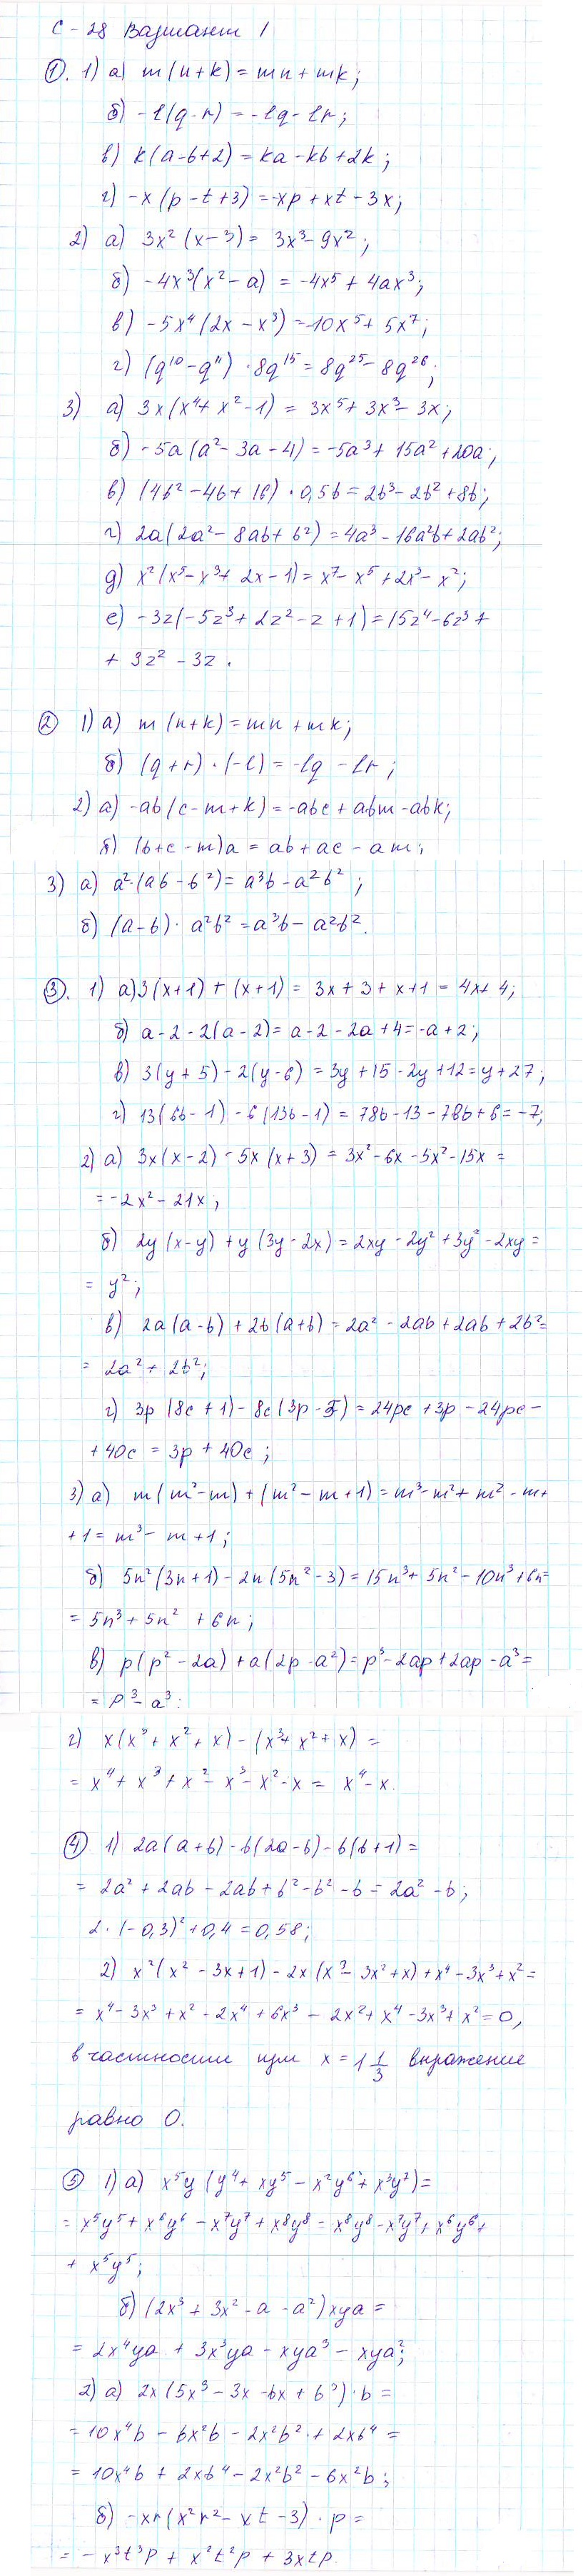 С - 28 Вариант 1
①. 1) а) m(n+k) = mn + mk;
б) -l(q-r) = -lq - lr;
в) k(a-b+2) = ka - kb + 2k;
г) -x(p-t+3) = -xp + xt - 3x;
2) а) 3x²(x-3) = 3x³ - 9x²;
б) -4x³(x²-a) = -4x⁵ + 4ax³;
в) -5x⁴(2x-x³) = -10x⁵ + 5x⁷;
г) (q¹⁰-q¹¹)·8q¹⁵ = 8q²⁵ - 8q²⁶;
3) а) 3x(x⁴+x²-1) = 3x⁵ + 3x³ - 3x;
б) -5a(a²-3a-4) = -5a³ + 15a² + 20a;
в) (4b²-4b+16)·0,5b = 2b³ - 2b² + 8b;
г) 2a(2a²-8ab+b²) = 4a³ - 16a²b + 2ab²;
д) x²(x⁵-x³+2x-1) = x⁷ - x⁵ + 2x³ - x²;
е) -3z(-5z³+2z²-z+1) = 15z⁴ - 6z³ +
+ 3z² - 3z.
② 1) а) m(n+k) = mn + mk;
б) (q+r)·(-l) = -lq - lr;
2) а) -ab(c-m+k) = -abc + abm - abk;
б) (b+c-m)a = ab + ac - am;
3) а) a²·(ab-b²) = a³b - a²b²;
б) (a-b)·a²b² = a³b - a²b².
③. 1) а) 3(x+1) + (x+1) = 3x + 3 + x + 1 = 4x + 4;
б) a - 2 - 2(a-2) = a - 2 - 2a + 4 = -a + 2;
в) 3(y+5) - 2(y-6) = 3y + 15 - 2y + 12 = y + 27;
г) 13(6b-1) - 6(13b-1) = 78b - 13 - 78b + 6 = -7;
2) а) 3x(x-2) - 5x(x+3) = 3x² - 6x - 5x² - 15x =
= -2x² - 21x;
б) 2y(x-y) + y(3y-2x) = 2xy - 2y² + 3y² - 2xy =
= y²;
в) 2a(a-b) + 2b(a+b) = 2a² - 2ab + 2ab + 2b² =
= 2a² + 2b²;
г) 3p(8c+1) - 8c(3p-5) = 24pc + 3p - 24pc -
+ 40c = 3p + 40c;
3) а) m(m²-m) + (m²-m+1) = m³ - m² + m² - m +
+ 1 = m³ - m + 1;
б) 5n²(3n+1) - 2n(5n²-3) = 15n³ + 5n² - 10n³ + 6n =
= 5n³ + 5n² + 6n;
в) p(p²-2a) + a(2p-a²) = p³ - 2ap + 2ap - a³ =
= p³ - a³;
г) x(x³+x²+x) - (x³+x²+x) =
= x⁴ + x³ + x² - x³ - x² - x = x⁴ - x.
④ 1) 2a(a+b) - b(2a-b) - b(b+1) =
= 2a² + 2ab - 2ab + b² - b² - b = 2a² - b;
2·(-0,3)² + 0,4 = 0,58;
2) x²(x²-3x+1) - 2x(x³-3x²+x) + x⁴ - 3x³ + x² =
= x⁴ - 3x³ + x² - 2x⁴ + 6x³ - 2x² + x⁴ - 3x³ + x² = 0,
в частности при x = 1 1/3 выражение
равно 0.
⑤ 1) а) x⁵y(y⁴+xy⁵-x²y⁶+x³y⁷) =
= x⁵y⁵ + x⁶y⁶ - x⁷y⁷ + x⁸y⁸ = x⁸y⁸ - x⁷y⁷ + x⁶y⁶ +
+ x⁵y⁵;
б) (2x³+3x²-a-a²)xya =
= 2x⁴ya + 3x³ya - xya³ - xya²;
2) а) 2x(5x³-3x-bx+b³)·b =
= 10x⁴b - 6x²b - 2x²b² + 2xb⁴ =
= 10x⁴b + 2xb⁴ - 2x²b² - 6x²b;
б) -xr(x²r²-xt-3)·p =
= -x³t³p + x²t²p + 3xtp.